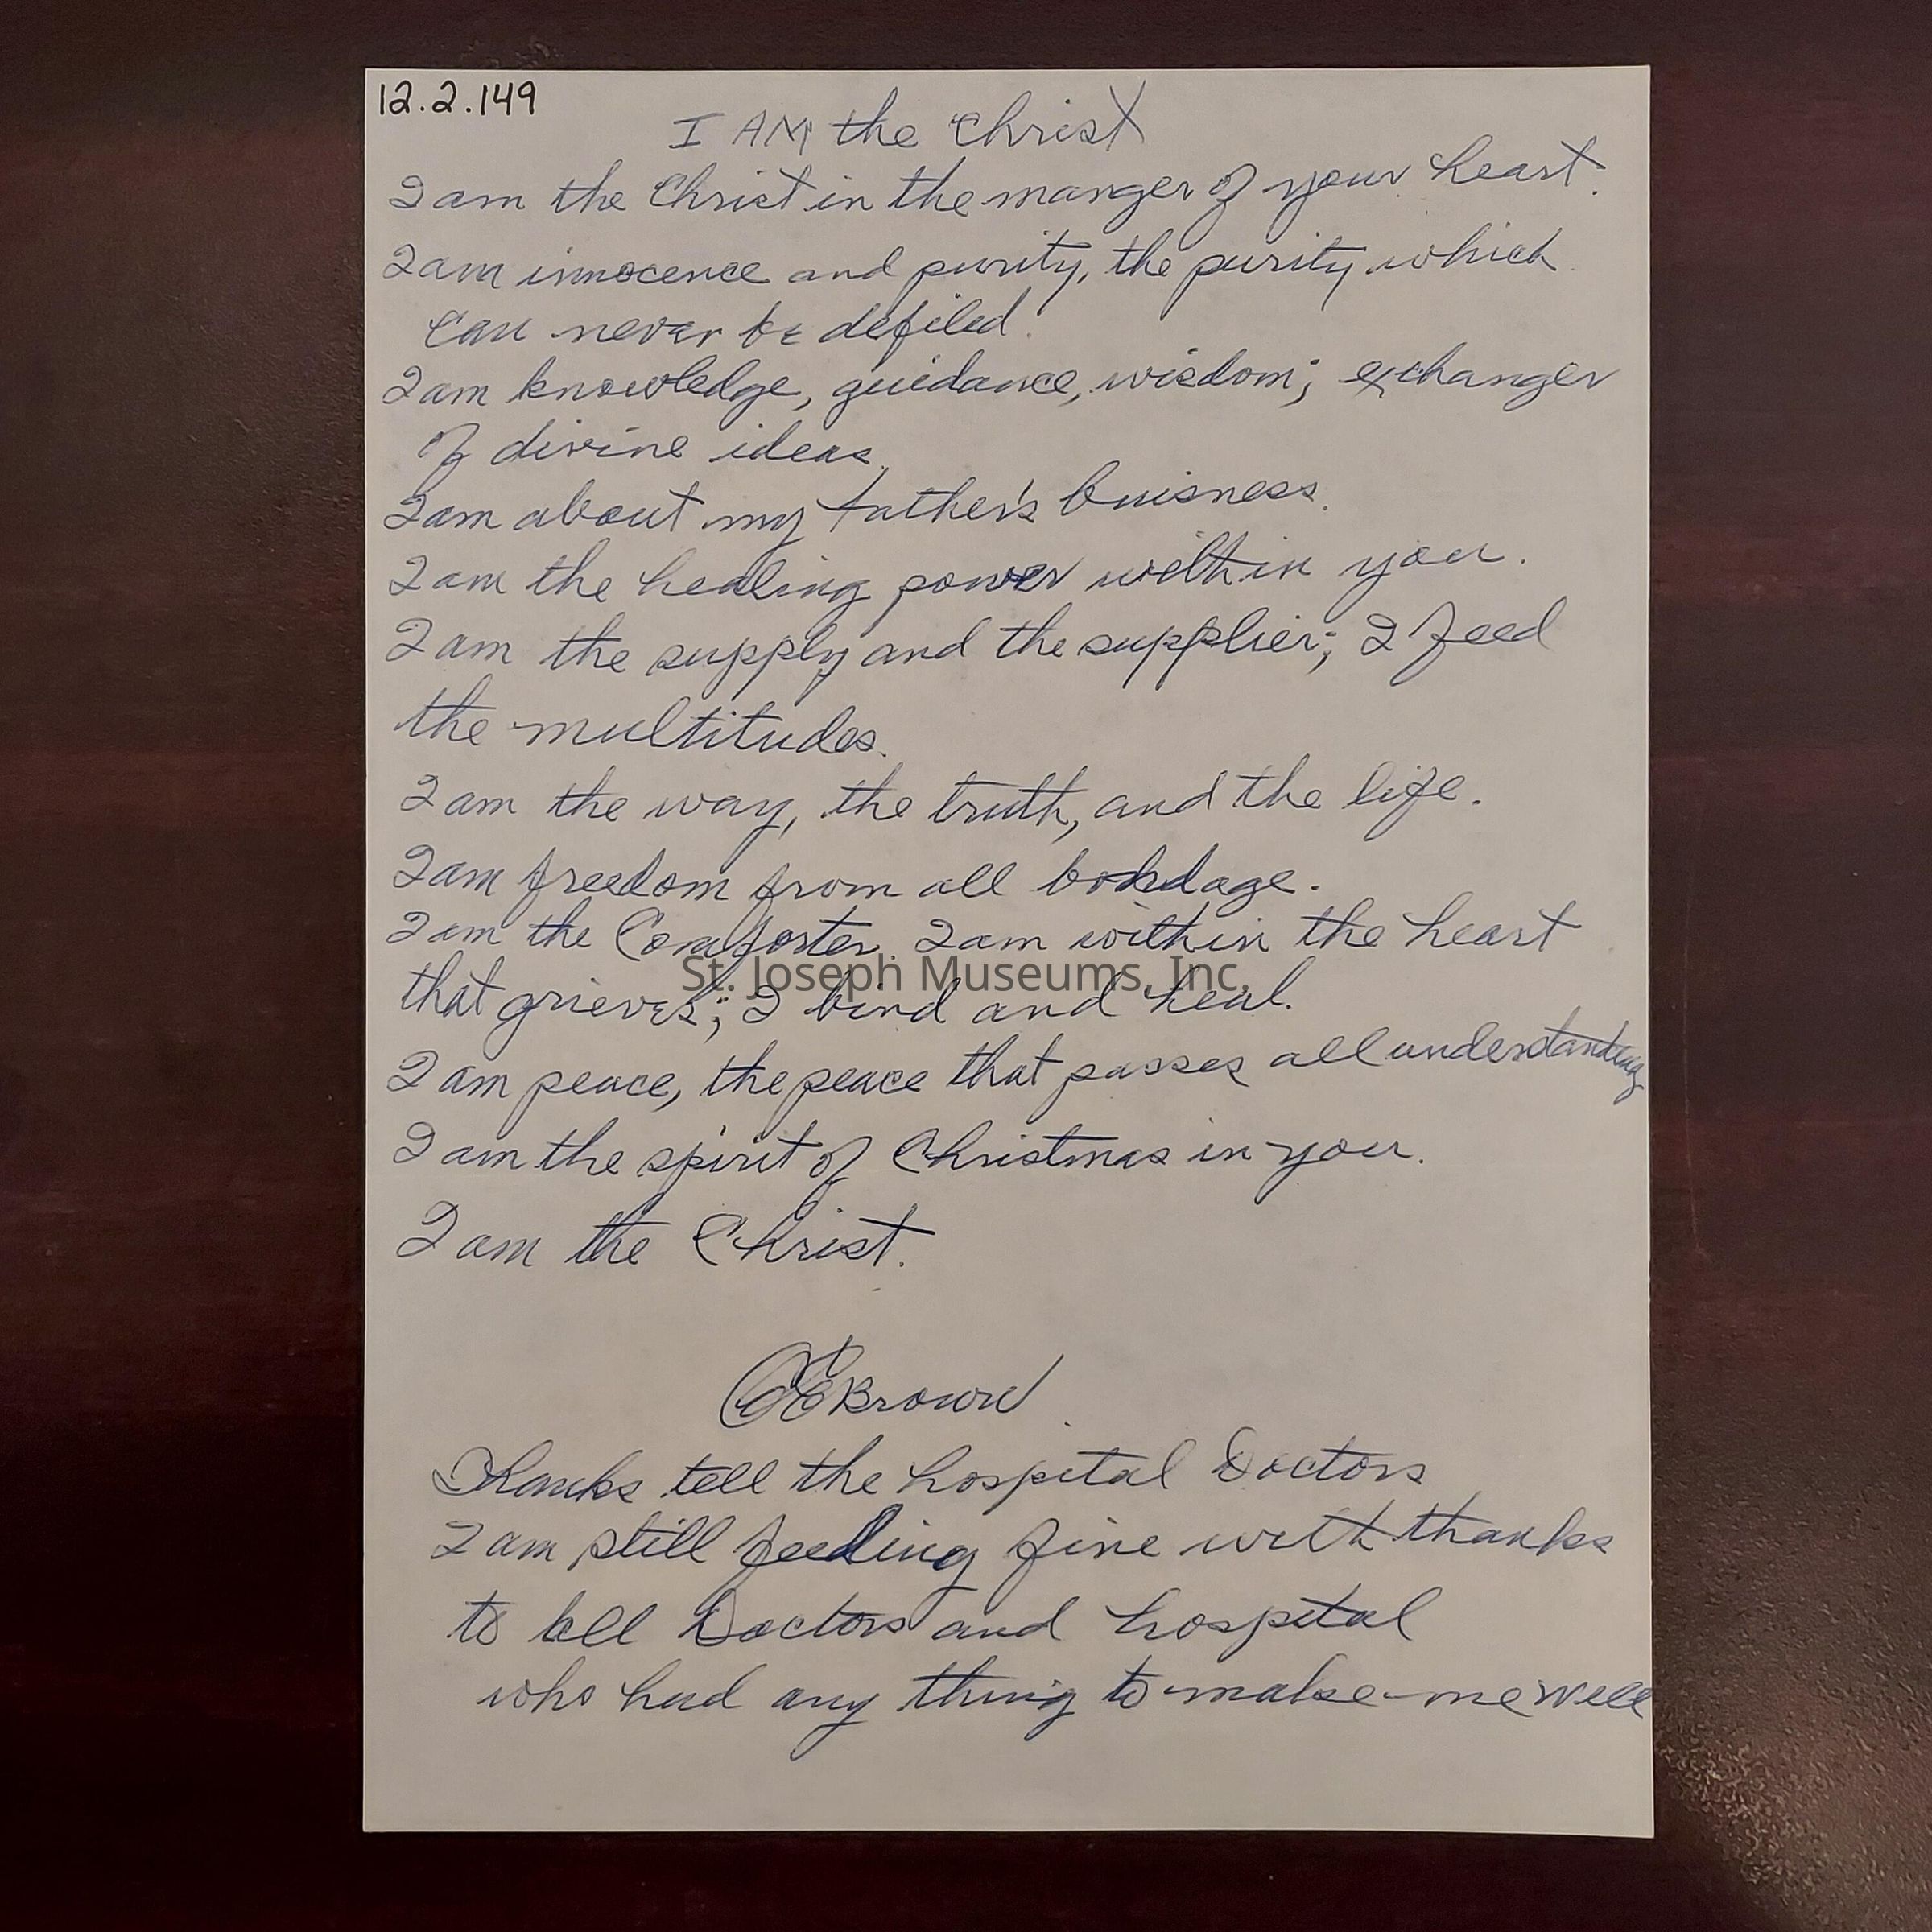 12.2.149
I AM the Christ
I am the Christ in the manger of your heart.
I am innocence and purity, the purity which
can never be defiled.
I am knowledge, guidance, wisdom; exchanger
of divine ideas.
I am about my father's buisness.
I am the healing power within you.
I am the supply and the supplier; I feed
the multitudes.
I am the way, the truth, and the life.
I am freedom from all bondage.
I am the Comforter. I am within the heart
St. Joseph Museums, Inc.
that grieves; I bind and heal.
I am peace, the peace that passes all understanding
I am the spirit of Christmas in you.
I am the Christ.
Brown
Thanks tell the hospital Doctors
I am still feeling fine with thanks
to all Doctors and hospital
who had any thing to make me well